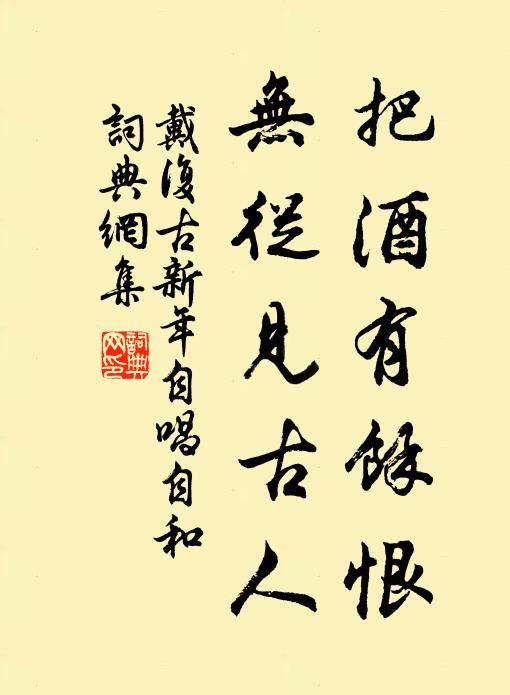 把酒有餘恨
無從見古人
戴復古新年自唱自和
詞典網集
詞典
网印